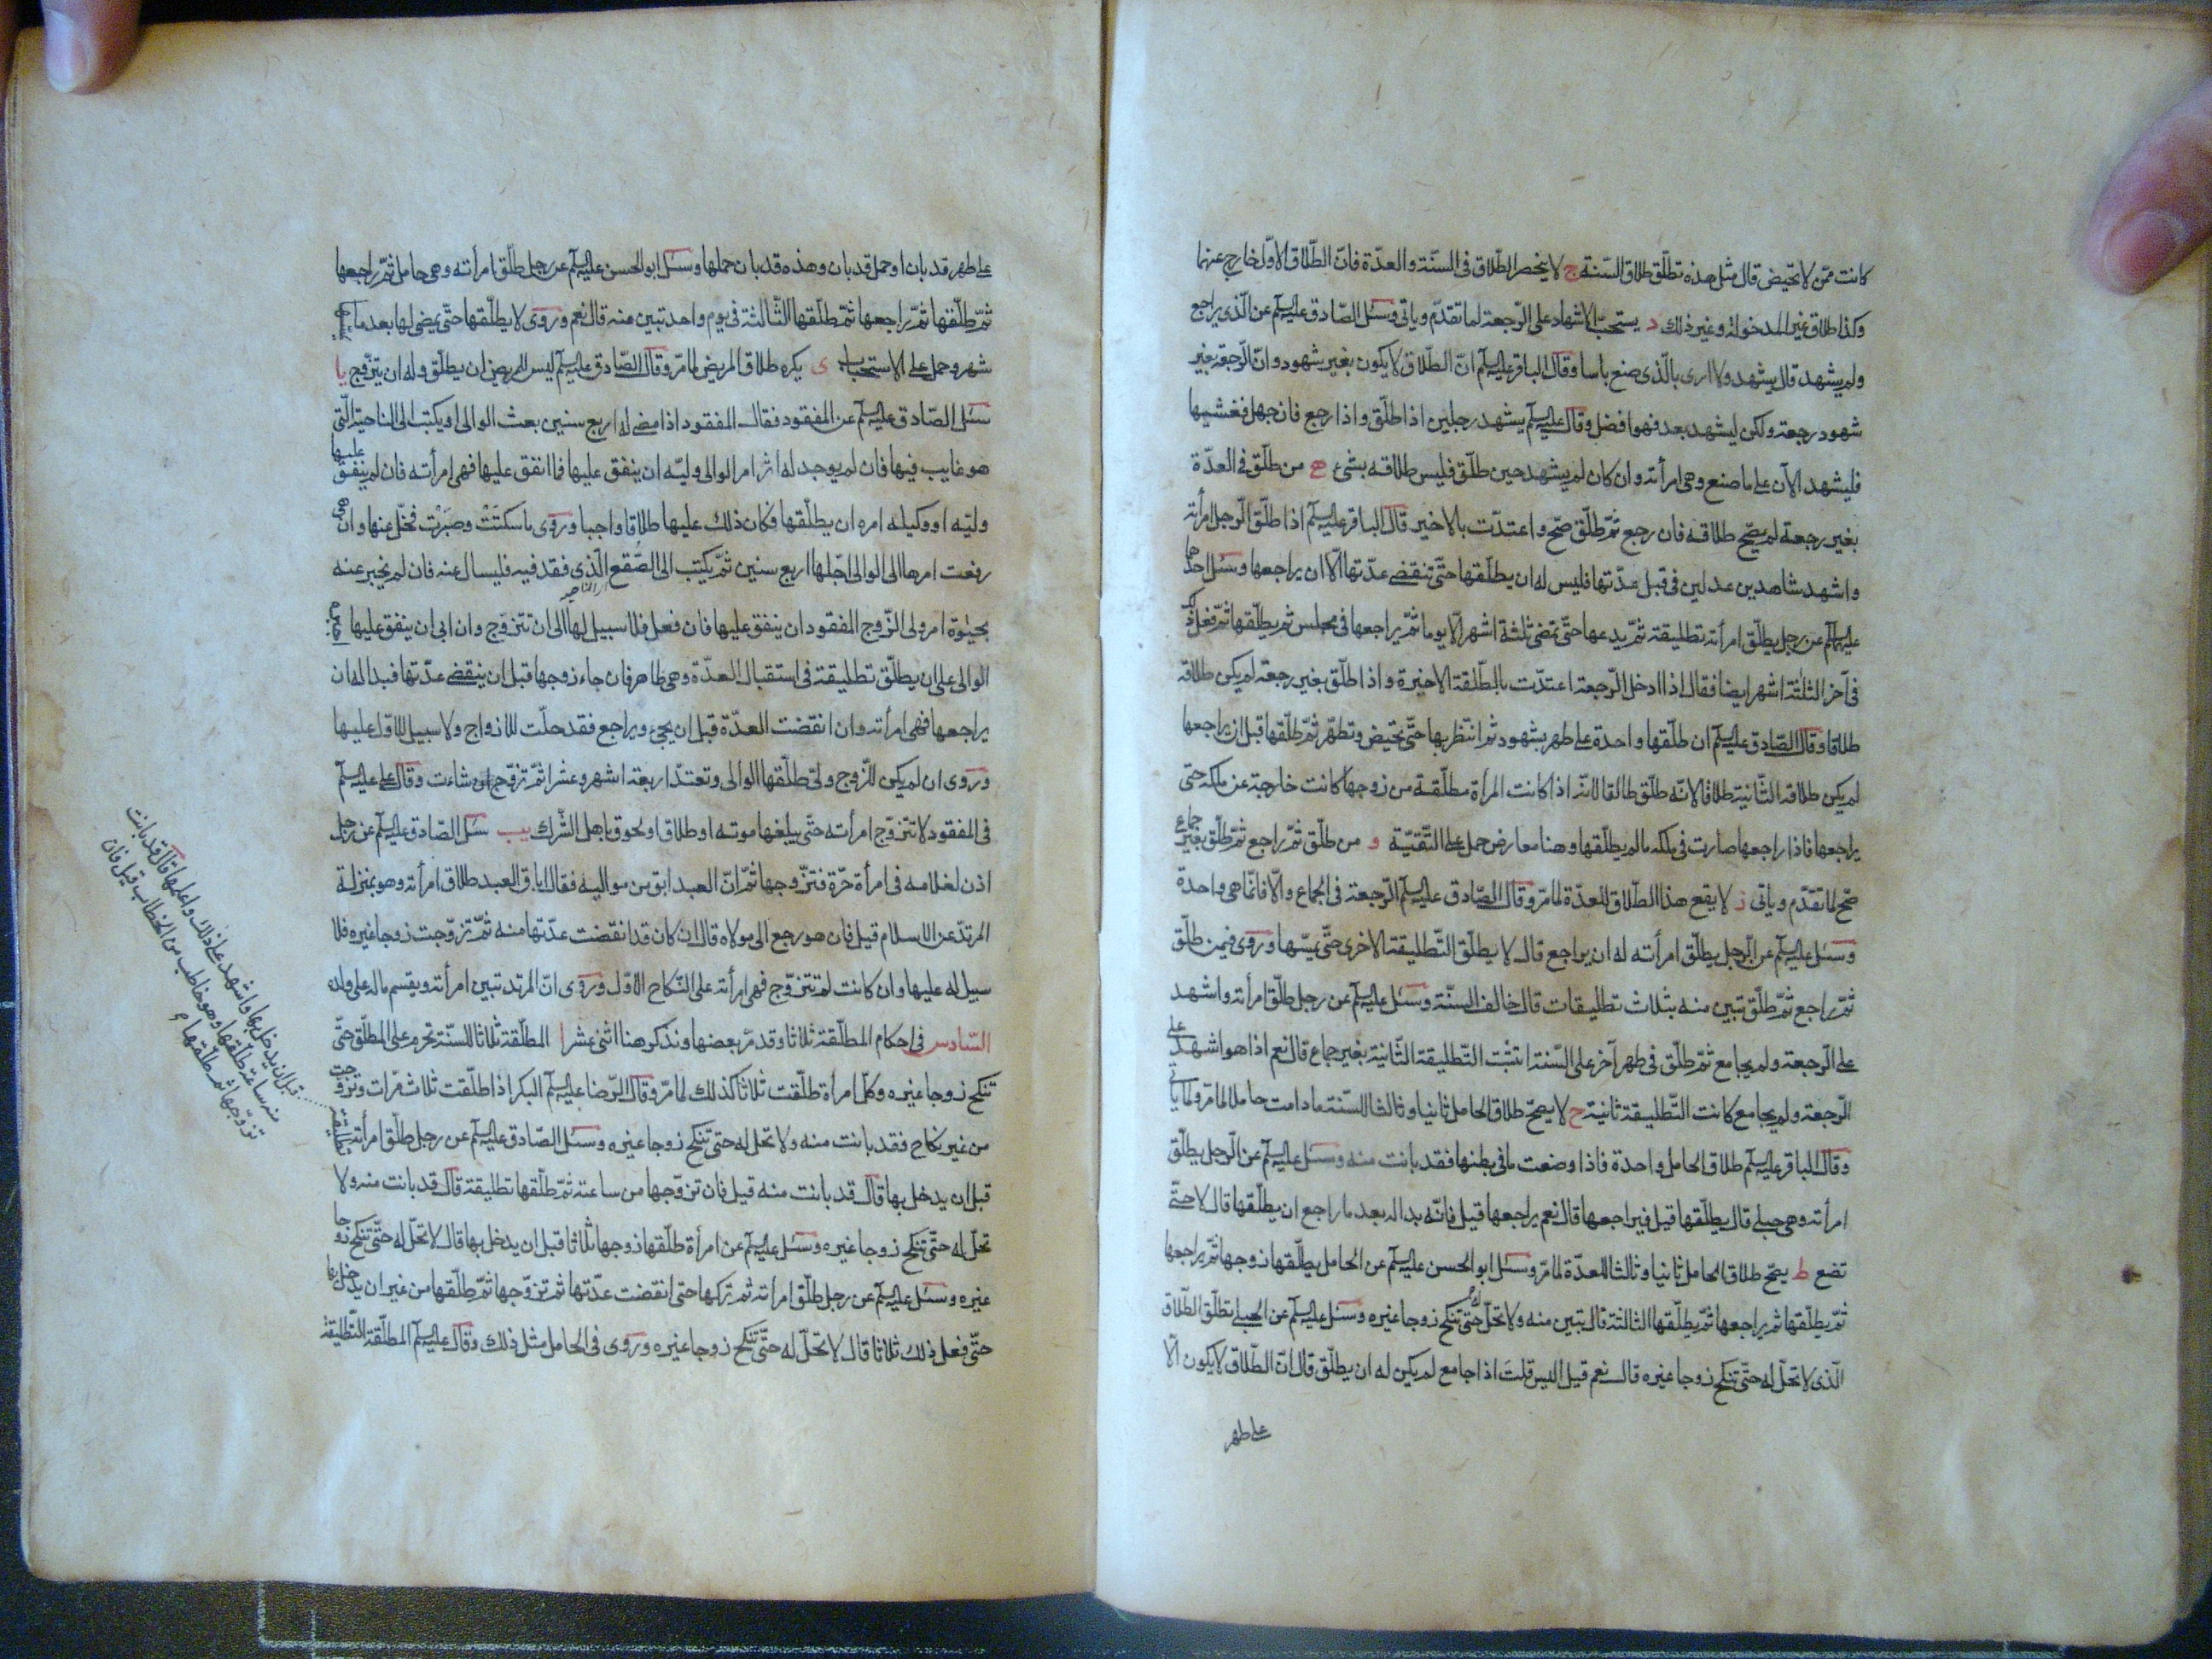 كانت ممّن لا تحيض قال مثل هذه تطلّق طلاق السّنة ج لا ينحصر الطّلاق فى السّنة والعدّة فانّ الطّلاق الاوّل خارج عنهما
وكذا طلاق غير المدخولة وغير ذلك د يستحبّ الاشهاد على الرّجعة لما تقدّم وياتى وسئل الصّادق عليه السلم عن الّذى يراجع
ولم يشهد قال يشهد ولا ارى بالّذى صنع باسا وقال الباقر عليه السلم انّ الطّلاق لا يكون بغير شهود وانّ الرّجعة بغير
شهود رجعة ولكن ليشهد بعد فهو افضل وقال عليه السلم يشهد رجلين اذا طلّق واذا رجع فان جهل فغشيها
فليشهد الآن على ما صنع وهى امرأته وان كان لم يشهد حين طلّق فليس طلاقه بشىء ه من طلّق فى العدّة
بغير رجعة لم يصحّ طلاقه فان رجع ثمّ طلّق صحّ واعتدّت بالاخير قال الباقر عليه السلم اذا طلّق الرّجل امرأته
واشهد شاهدين عدلين فى قبل عدّتها فليس له ان يطلّقها حتّى تنقضى عدّتها الّا ان يراجعها وسئل احدهما
عليهما السلم عن رجل يطلّق امرأته تطليقة ثمّ يدعها حتّى تمضى ثلثة اشهر الّا يوما ثمّ يراجعها فى مجلس ثم يطلّقها ثمّ فعل ذلك
فى آخر الثلثة اشهر ايضا فقال اذا ادخل الرّجعة اعتدّت بالطّلقة الاخيرة واذا طلّق بغير رجعة لم يكن طلاقه
طلاقا وقال الصّادق عليه السلم ان طلّقها واحدة على طهر بشهود ثم انتظر بها حتّى تحيض وتطهر ثمّ طلّقها قبل ان يراجعها
لم يكن طلاقه الثّانية طلاقا لانّه طلّق طالقا لانّه اذا كانت المرأة مطلّقة من زوجها كانت خارجة عن ملكه حتى
يراجعها فاذا راجعها صارت فى ملكه ما لم يطلّقها وهنا معارض حمل على التّقيّة و من طلّق ثمّ راجع ثمّ طلّق بغير جماع
صحّ لما تقدّم وياتى ز لا يقع هذا الطّلاق للعدّة لما مرّ وقال الصّادق عليه السلم الرّجعة فى الجماع والّا فانّما هى واحدة
وسئل عليه السلم عن الرّجل يطلّق امرأته له ان يراجع قال لا يطلّق التّطليقة الاخرى حتّى يمسّها وروى فيمن طلّق
ثمّ راجع ثمّ طلّق تبين منه بثلاث تطليقات قال خالف السنّة وسئل عليه السلم عن رجل طلّق امرأته واشهد
على الرّجعة ولم يجامع ثمّ طلّق فى طهر آخر على السّنة اتثبت التّطليقة الثّانية بغير جماع قال نعم اذا هو اشهد على
الرّجعة ولم يجامع كانت التّطليقة ثانية ح لا يصحّ طلاق الحامل ثانيا وثالثا للسّنة ما دامت حاملا لما مرّ ولما ياتى
وقال الباقر عليه السلم طلاق الحامل واحدة فاذا وضعت ما فى بطنها فقد بانت منه وسئل عليه السلم عن الرّجل يطلّق
امرأته وهى حبلى قال يطلّقها قيل فيراجعها قال نعم يراجعها قيل فانّه بدا له بعد ما راجع ان يطلّقها قال لا حتّى
تضع ط يصحّ طلاق الحامل ثانيا وثالثا للعدّة لما مرّ وسئل ابو الحسن عليه السلم عن الحامل يطلّقها زوجها ثمّ يراجعها
ثمّ يطلّقها ثم يراجعها ثمّ يطلّقها الثالثة قال تبين منه ولا تحلّ له حتّى تنكح زوجا غيره وسئل عليه السلم عن الحبلى تطلّق الطّلاق
الّذى لا تحلّ له حتّى تنكح زوجا غيره قال نعم قيل اليس قلت اذا جامع لم يكن له ان يطلّق قال انّ الطّلاق لا يكون الّا
على طهر
على طهر قد بان او حمل قد بان وهذه قد بان حملها وسئل ابو الحسن عليه السلم عن رجل طلّق امرأته وهى حامل ثمّ راجعها
ثمّ طلّقها ثمّ راجعها ثمّ طلّقها الثّالثة فى يوم واحد تبين منه قال نعم وروى لا يطلّقها حتّى يمضى لها بعد ما
شهر وحمل على الاستحباب ى يكره طلاق المريض لما مرّ وقال الصّادق عليه السلم ليس للمريض ان يطلّق وله ان يتزوّج يا
سئل الصّادق عليه السلم عن المفقود فقال المفقود اذا مضى له اربع سنين بعث الوالى او يكتب الى الناحية الّتى
هو غايب فيها فان لم يوجد له اثر امر الوالى وليّه ان ينفق عليها فما انفق عليها فهى امرأته فان لم ينفق عليها
وليّه او وكيله امره ان يطلّقها فكان ذلك عليها طلاقا واجبا وروى ما سكتت وصبرت فخلّ عنها وان هى
رفعت امرها الى الوالى اجّلها اربع سنين ثمّ يكتب الى الصّقع الّذى فقد فيه فليسال عنه فان لم يخبر عنه
بحيوة امر ولى الزّوج المفقود ان ينفق عليها فان فعل فلا سبيل لها الى ان تتزوّج وان ابى ان ينفق عليها
الوالى على ان يطلّق تطليقة فى استقبال العدّة وهى طاهر فان جاء زوجها قبل ان ينقضى عدّتها فبدا له ان
يراجعها فهى امرأته وان انقضت العدّة قبل ان يجىء ويراجع فقد حلّت للازواج ولا سبيل للاوّل عليها
وروى ان لم يكن للزّوج ولىّ طلّقها الوالى وتعتدّ اربعة اشهر وعشرا ثمّ تزوّج ان شاءت وقال على عليه السلم
فى المفقود لا تتزوّج امرأته حتّى يبلغها موته او طلاق او لحوق باهل الشّرك يب سئل الصّادق عليه السلم عن رجل
اذن لغلامه فى امرأة حرّة فتزوجها ثمّ انّ العبد ابق من مواليه فقال اباق العبد طلاق امرأته وهو بمنزلة
المرتدّ عن الاسلام قيل فان هو رجع الى مولاه قال ان كان قد انقضت عدّتها منه ثمّ تزوّجت زوجا غيره فلا
سبيل له عليها وان كانت لم تتزوّج فهى امرأته على النّكاح الاوّل وروى انّ المرتد تبين امرأته ويقسم ماله على ولده
السّادس فى احكام المطلّقة ثلاثا وقد مرّ بعضها ونذكر هنا اثنى عشر ا المطلّقة ثلاثا للسنّة تحرم على المطلّق حتّى
تنكح زوجا غيره وكلّ امرأة طلّقت ثلاثا كذلك لما مرّ وقال الرّضا عليه السلم البكر اذا طلّقت ثلاث مرّات وتزوّجت
من غير نكاح فقد بانت منه ولا تحل له حتى تنكح زوجا غيره وسئل الصّادق عليه السلم عن رجل طلّق امرأته تطليقة
قبل ان يدخل بها قال قد بانت منه قيل فان تزوّجها من ساعته ثمّ طلّقها تطليقة قال قد بانت منه ولا
تحلّ له حتّى تنكح زوجا غيره وسئل عليه السلم عن امرأة طلّقها زوجها ثلاثا قبل ان يدخل بها قال لا تحلّ له حتّى تنكح زوجا
غيره وسئل عليه السلم عن رجل طلّق امرأته ثم تركها حتى انقضت عدّتها ثم تزوّجها ثمّ طلّقها من غير ان يدخل بها
حتّى فعل ذلك ثلاثا قال لا تحلّ له حتّى تنكح زوجا غيره وروى فى الحامل مثل ذلك وقال عليه السلم المطلّقة التّطليقة
قبل ان يدخل بها واشهد على ذلك واعلمها قال قد بانت
منه ساعة طلّقها وهو خاطب من الخطاب قيل فان
تزوّجها ثم طلّقها